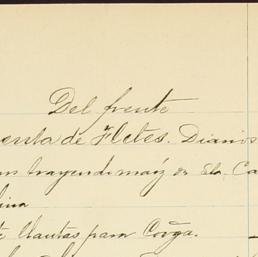 Del frente
enta de Fletes. Diarios
trayendo maíz de Sta. Ca
lina
te llantas para Covga.